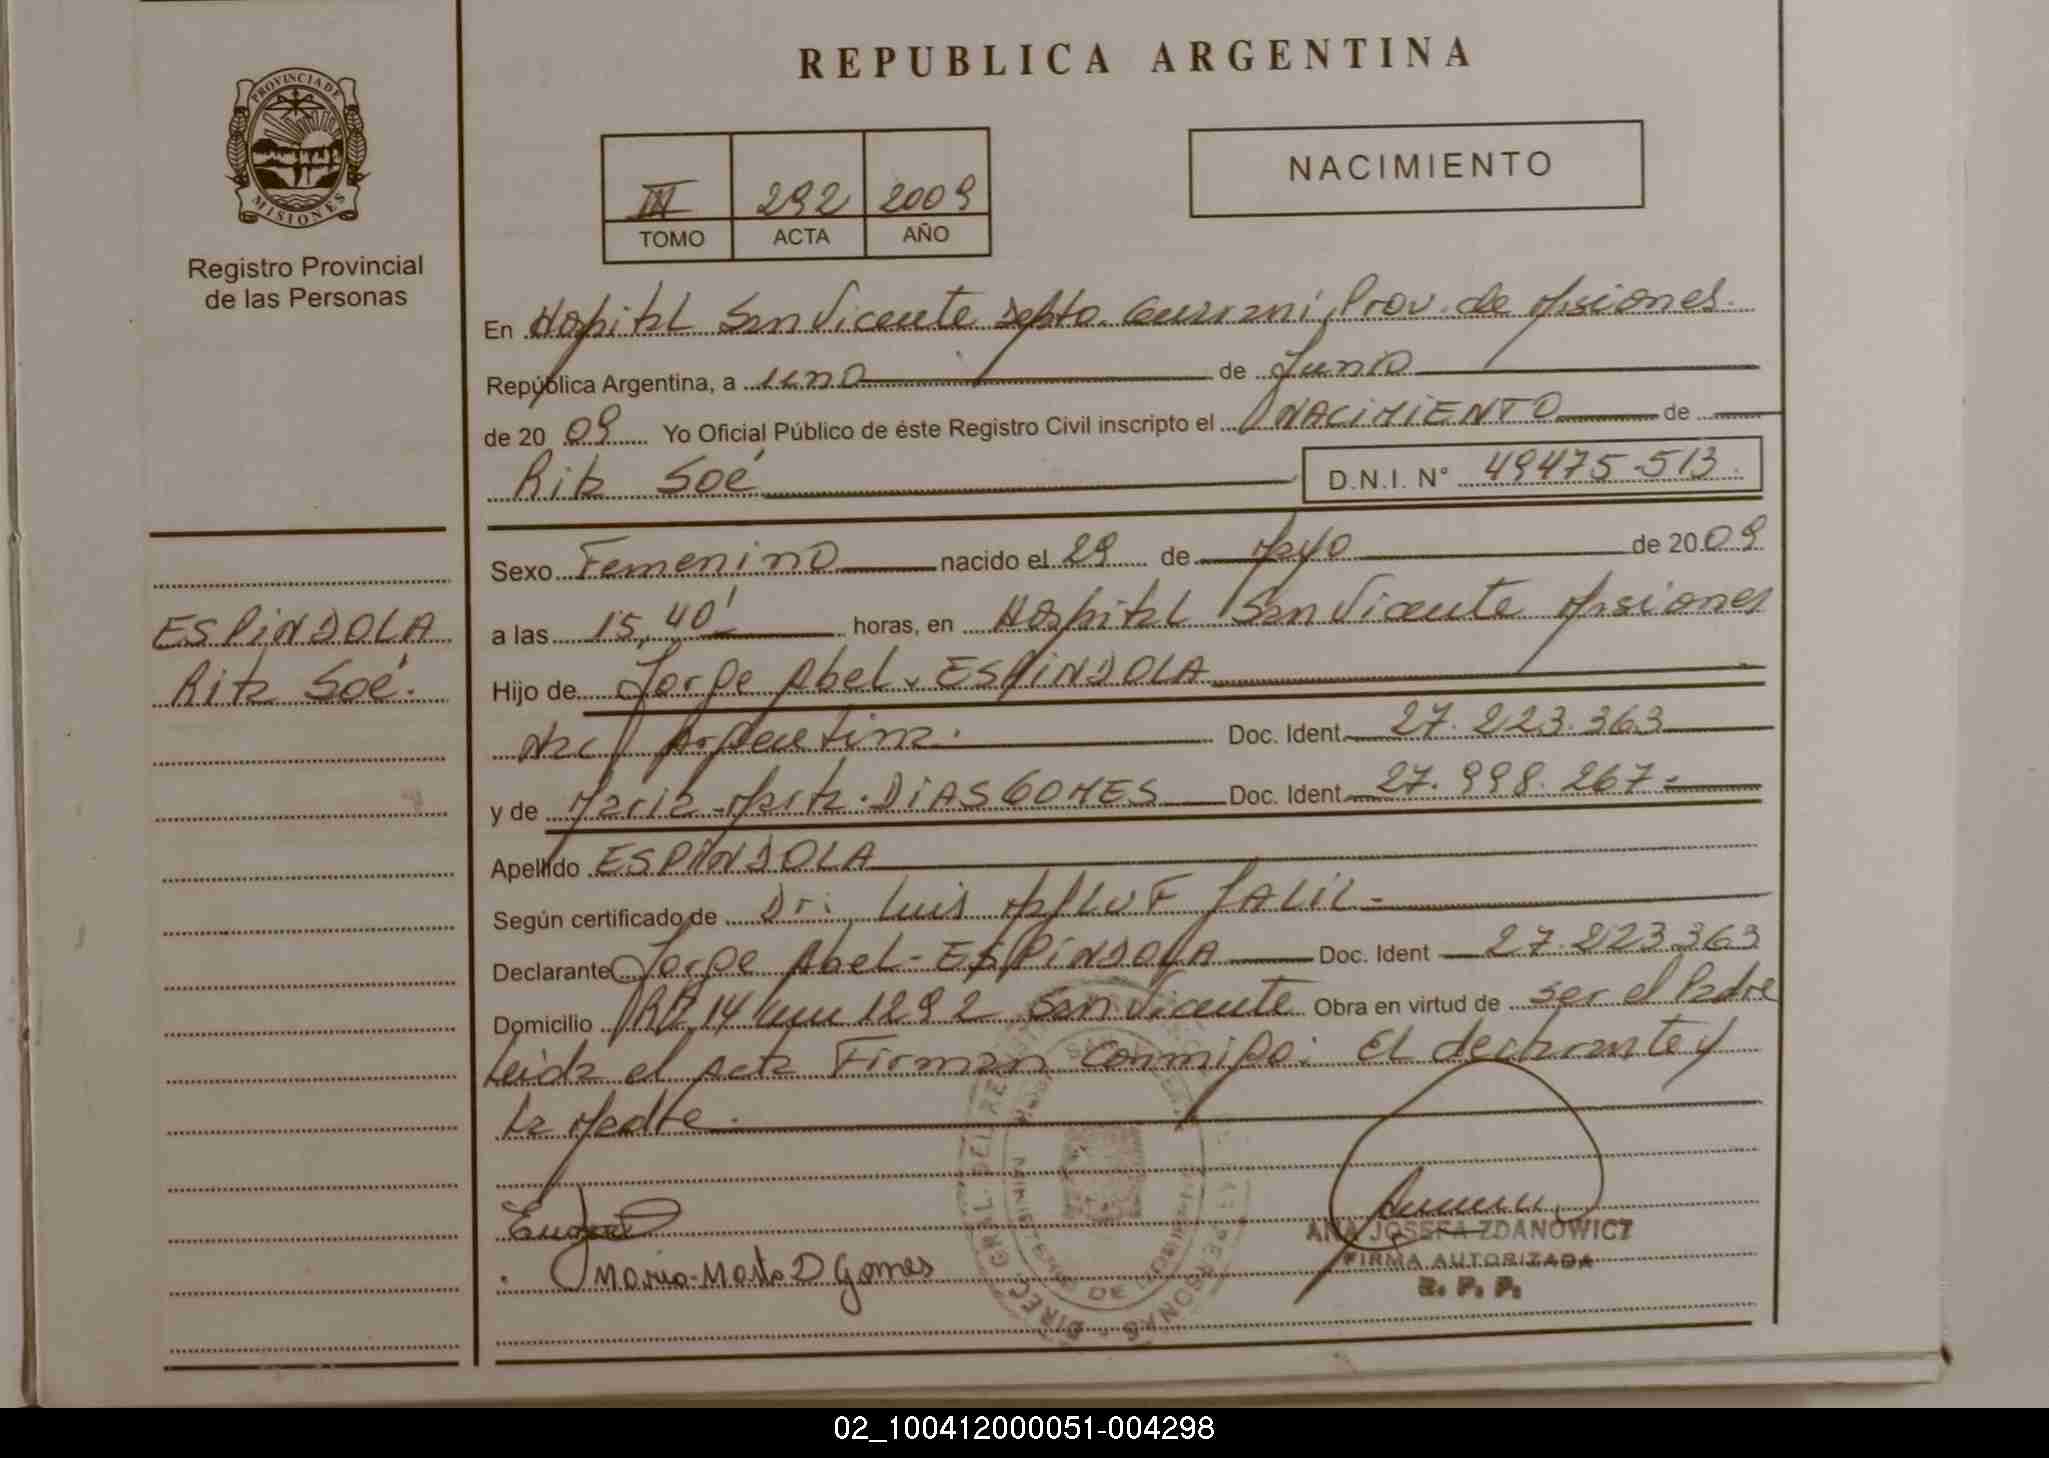 PROVINCIA DE
MISIONES
Registro Provincial
de las Personas
ESPINDOLA
Rita Soé.
REPUBLICA ARGENTINA
III 292 2009
TOMO ACTA AÑO
NACIMIENTO
En Hospital San Vicente Depto. Guarani, Prov. de Misiones.
República Argentina, a uno de Junio
de 2009 Yo Oficial Público de éste Registro Civil inscripto el NACIMIENTO de
Rita Soé D.N.I. N° 49475-513.
Sexo Femenino nacido el 29 de Mayo de 2009
a las 15,40' horas, en Hospital San Vicente Misiones
Hijo de Jorge Abel. ESPINDOLA
Nac Argentina. Doc. Ident 27.223.363
y de Maria Marta. DIAS GOMES Doc. Ident 27.998.267-
Apellido ESPINDOLA
Según certificado de Dr: Luis JALIL-
Declarante Jorge Abel-ESPINDOLA Doc. Ident 27.223.363
Domicilio 14 km 1292 San Vicente Obra en virtud de ser el Padre
Leida el Acta Firman conmigo: El declarante y
la Madre.
Maria-Marta D Gomes
ANA JOSEFA ZDANOWICZ
FIRMA AUTORIZADA
R. P. P.
02_100412000051-004298